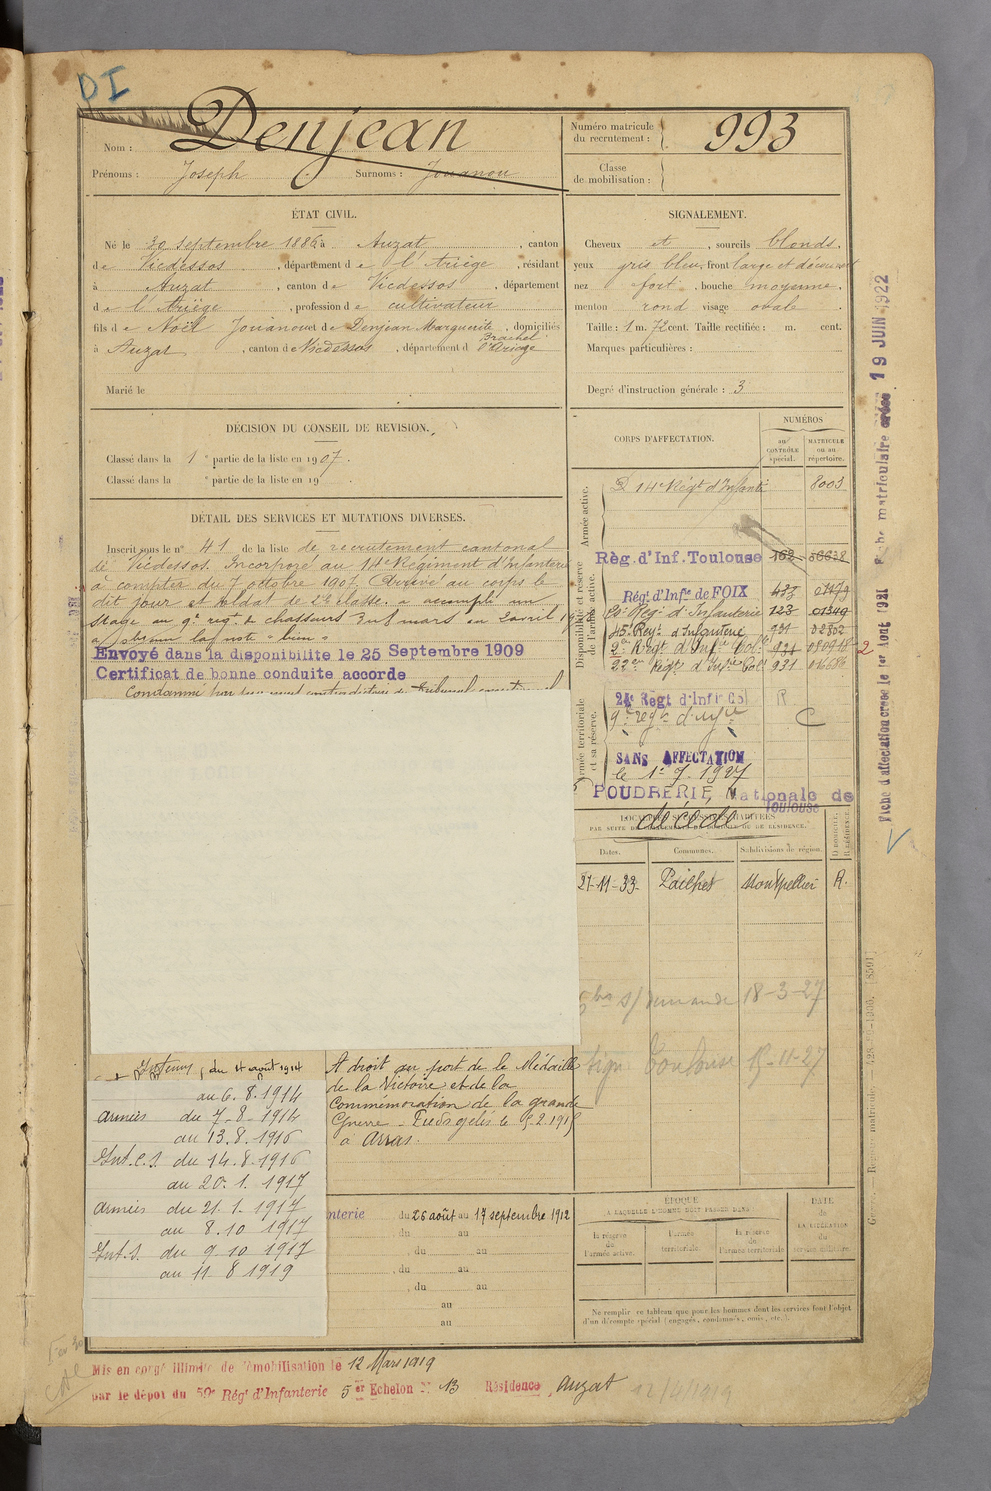 DI
Nom : Denjean
Numéro matricule du recrutement : 993
Prénoms : Joseph Surnoms : Jouanou
Classe de mobilisation :
ÉTAT CIVIL.
Né le 30 septembre 1886 à Auzat, canton
de Vicdessos, département de l'Ariège, résidant
à Auzat, canton de Vicdessos, département
de l'Ariège, profession de cultivateur
fils de Noël Jouanou et de Denjean Marguerite, domiciliés
à Auzat, canton de Vicdessos, département d l'Ariège
Marié le
SIGNALEMENT.
Cheveux et, sourcils blonds,
yeux gris bleu, front large et découvert
nez fort, bouche moyenne,
menton rond visage ovale.
Taille : 1 m. 72 cent. Taille rectifiée : m. cent.
Marques particulières :
Degré d'instruction générale : 3
DÉCISION DU CONSEIL DE REVISION.
Classé dans la 1e partie de la liste en 1907.
Classé dans la e partie de la liste en 19 .
DÉTAIL DES SERVICES ET MUTATIONS DIVERSES.
Inscrit sous le n° 41 de la liste de recrutement cantonal
de Vicdessos. Incorporé au 14e Régiment d'Infanterie
à compter du 7 octobre 1907. Arrivé au corps le
dit jour et soldat de 2e classe. a accompli un
stage au 9e regt de chasseurs mars au 2 avril
a obtenu la note "bien"
Envoyé dans la disponibilite le 25 Septembre 1909
Certificat de bonne conduite accorde
Condamné par jugement contradictoire du Tribunal correctionnel
CORPS D'AFFECTATION.
NUMÉROS
au CONTRÔLE spécial.
MATRICULE ou au répertoire.
Armée active.
D 14e Régt d'Infanti 8003
Disponibilité et réserve de l'armée active.
Règ. d'Inf. Toulouse 162
Régt d'Infie de FOIX 433
Régt d'Infanterie 123 01349
45e Regt d'Infanterie 931 02302
9e Régt d'Infie Colle 921 2
22e Régt d'Infie Col 921
Armée territoriale et sa réserve.
24e Régt d'Infie Col R
9e regt d'infie C
SANS AFFECTATION
le 1-7-1927
POUDRERIE Nationale de
Toulouse
décédé
LOCALITÉS SUCCESSIVES HABITÉES
PAR SUITE DE CHANGEMENTS DE DOMICILE OU DE RÉSIDENCE.
Dates. Communes. Subdivisions de région. D. DOMICILE, R. RÉSIDENCE.
27-11-33 Pailhès Montpellier R.
s/ demande 18-3-27
Toulouse 15-11-27
du 4 août 1914
au 6.8.1914
armées du 7-8-1914
au 13.8.1916
Int.C.S. du 14.8.1916
au 20.1.1917
armées du 21.1.1917
au 8.10 1917
Int.S. du 9.10 1917
au 11 8 1919
A droit au port de la Médaille
de la Victoire et de la
Commémoration de la grande
Guerre - Pieds gelés le 5.2.1915
à Arras.
nterie du 26 août au 17 septembre 1912
du au
, du au
, du au
, du au
au
au
ÉPOQUE
A LAQUELLE L'HOMME DOIT PASSER DANS
la réserve de l'armée active.
l'armée territoriale.
la réserve de l'armée territoriale.
DATE de LA LIBÉRATION du service militaire.
Ne remplir ce tableau que pour les hommes dont les services font l'objet
d'un décompte spécial (engagés, condamnés, omis, etc.).
Mis en congé illimité de démobilisation le 12 Mars 1919
par le dépôt du 59e Rég' d'Infanterie 5er Echelon N° 13 Résidence Auzat 12/4/1919
Fiche d'affectation créée le 1er Aout 1921 Fiche matriculaire créée 19 JUIN 1922